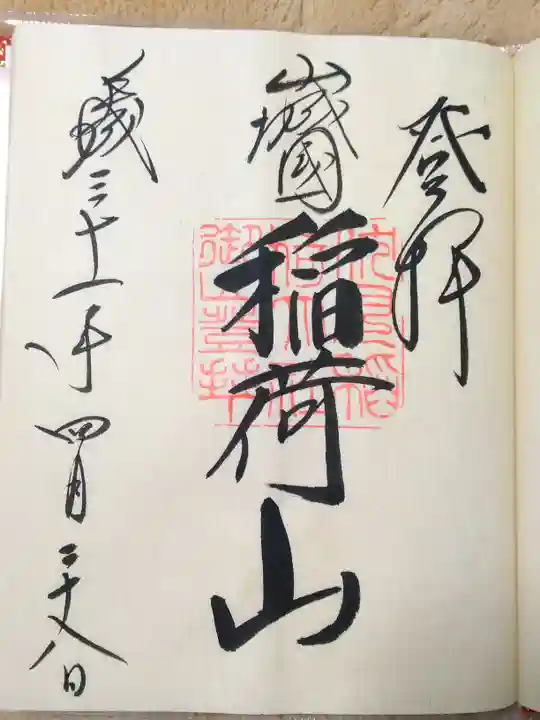 登拝
山城國
稲荷山
平成三十一年四月二十八日